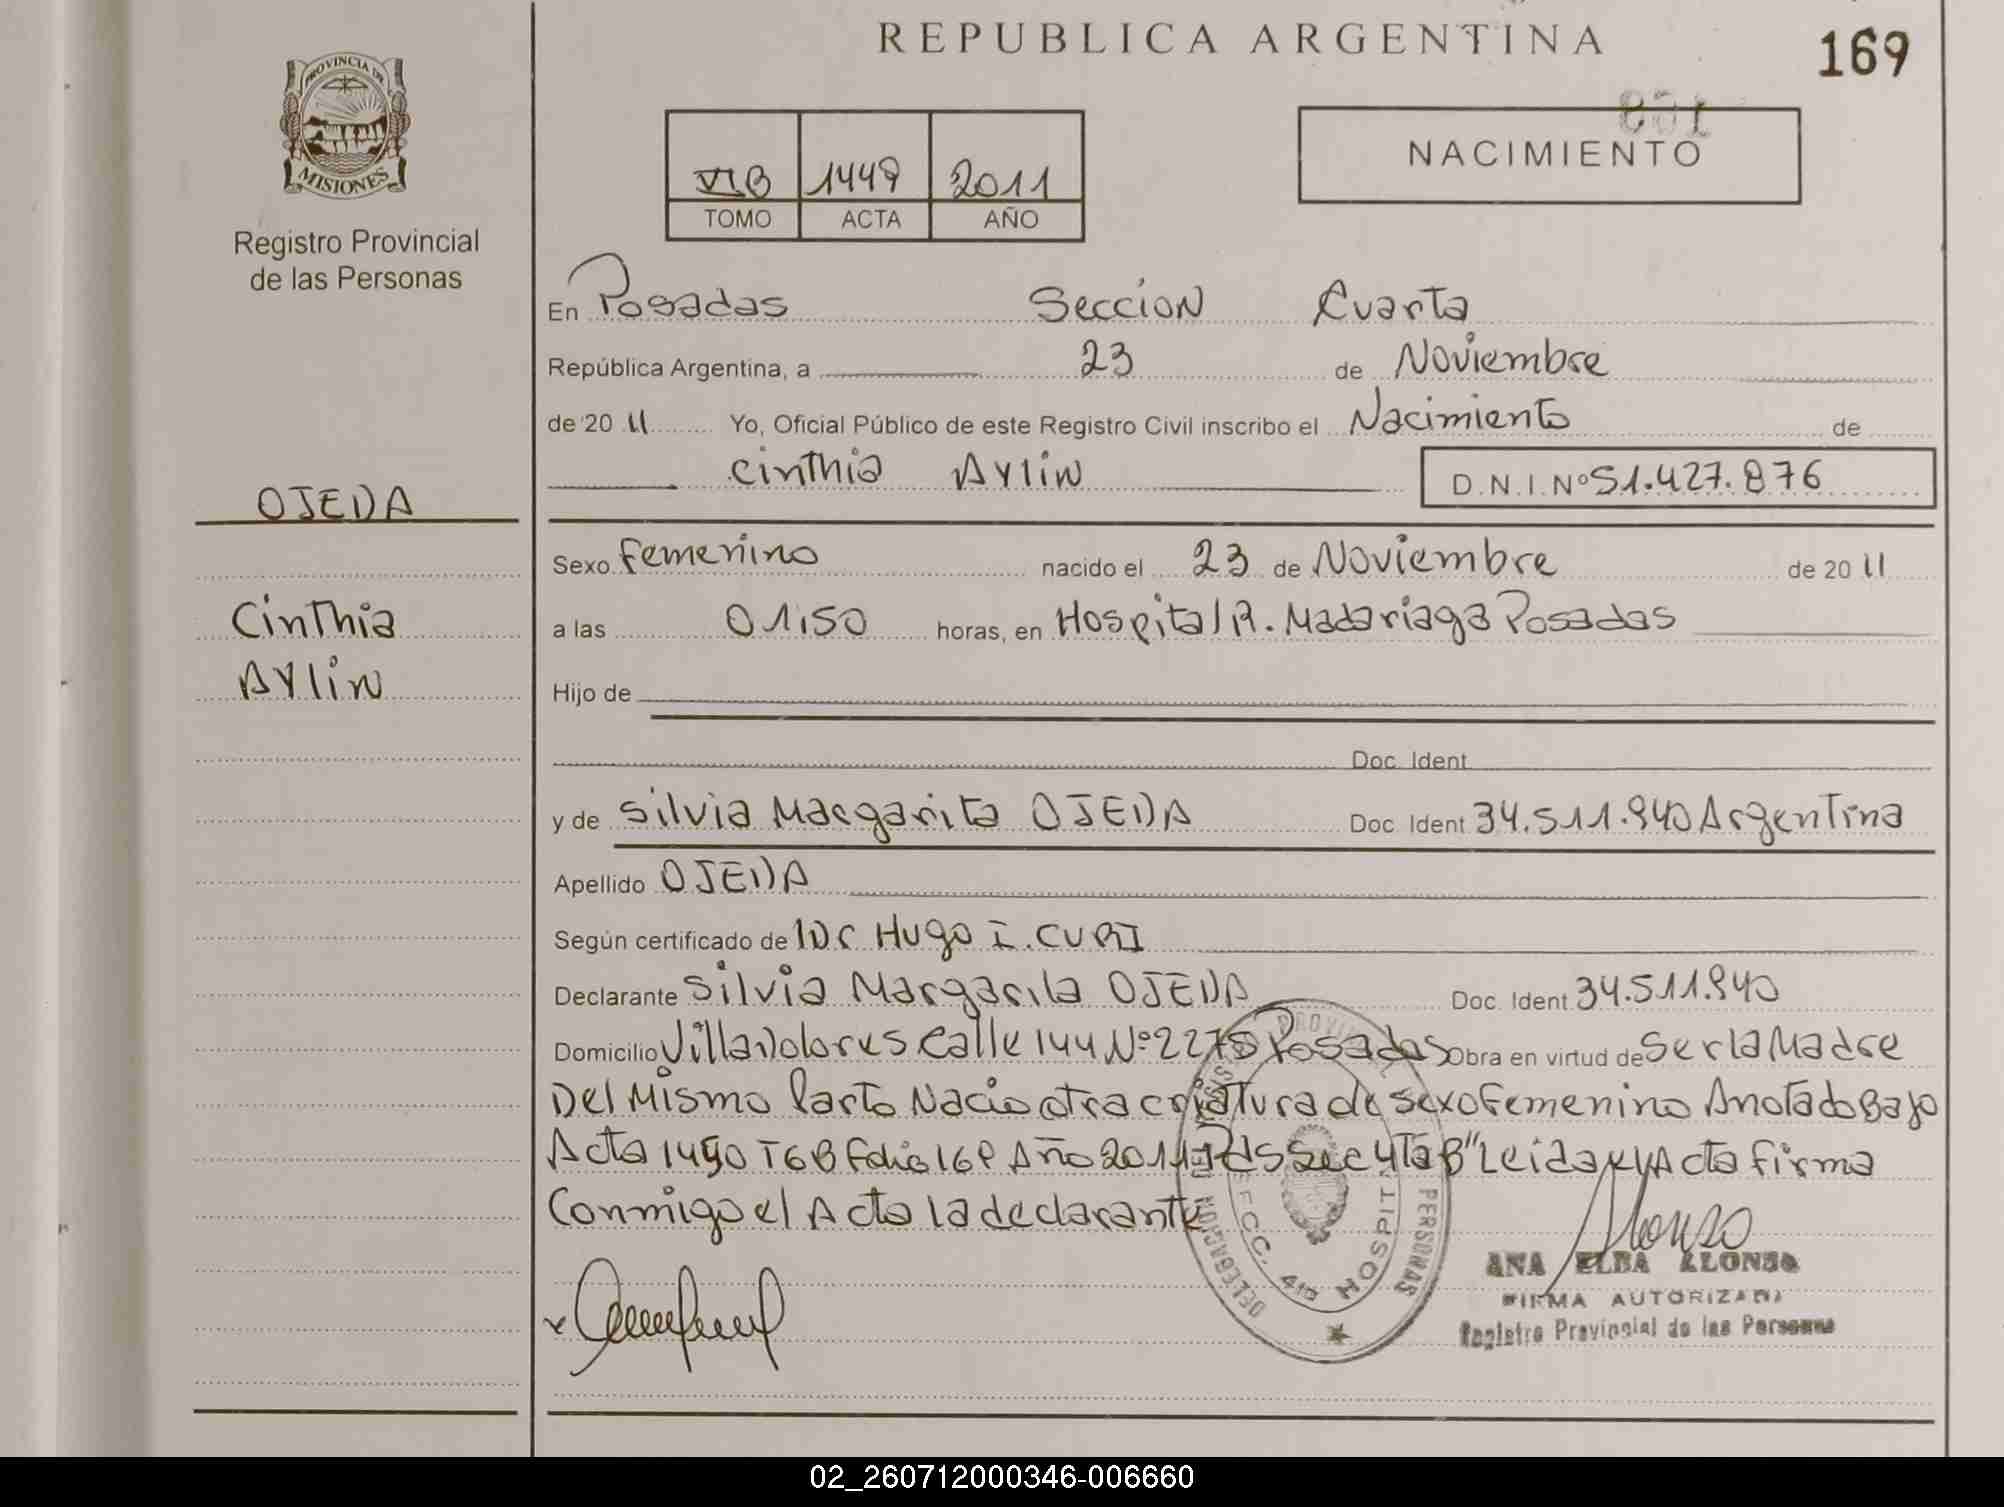 REPUBLICA ARGENTINA
169
PROVINCIA DE
MISIONES
Registro Provincial
de las Personas
VI B 1449 2011
TOMO ACTA AÑO
NACIMIENTO
En Posadas Seccion Cuarta
República Argentina, a 23 de Noviembre
de 20 11 Yo, Oficial Público de este Registro Civil inscribo el Nacimiento de
Cinthia Aylin D.N.I.Nº 51.427.876
OJEDA
Cinthia
Aylin
Sexo Femenino nacido el 23 de Noviembre de 20 11
a las 01,50 horas, en Hospital R. Madariaga Posadas
Hijo de
Doc. Ident
y de Silvia Margarita OJEDA Doc. Ident 34.511.940 Argentina
Apellido OJEDA
Según certificado de Dr Hugo I. CURI
Declarante Silvia Margarita OJEDA Doc. Ident 34.511.940
Domicilio Villa Dolores Calle 144 Nº 2278 Posadas Obra en virtud de Ser la Madre
Del Mismo Parto Nacio otra criatura de sexo Femenino Anotado Bajo
Acta 1450 T6B Folio 169 Año 2011 Pds Sec 4ta B" Leida el Acta firma
Conmigo el Acta la declarante
DELEGACION DEL REGISTRO PROVINCIAL PERSONAS
SECC. 4ta HOSPITAL
Alonso
ANA ELBA ALONSO
FIRMA AUTORIZADA
Registro Provincial de las Personas
02_260712000346-006660